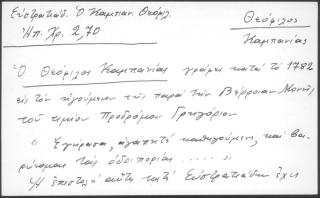 Εὐστρατιάδ. Ὁ Καμπαν. Θεόφιλ.
Ἠπ. Χρ. 2,70
Θεόφιλος
Καμπανίας
Ὁ Θεόφιλος Καμπανίας γράφει κατὰ τὸ 1782
εἰς τὸν ἡγούμενον τῆς παρὰ τὴν Βέρροιαν Μονῆς
τοῦ τιμίου Προδρόμου Γρηγόριον
" Ἐγήρασα, ἀγαπητὲ καθηγούμενε, καὶ βα-
ρύνομαι τὰς ὁδοιπορίας ..... "
Ἡ ἐπιστολὴ αὕτη κατ' Εὐστρατιάδην ἔχει